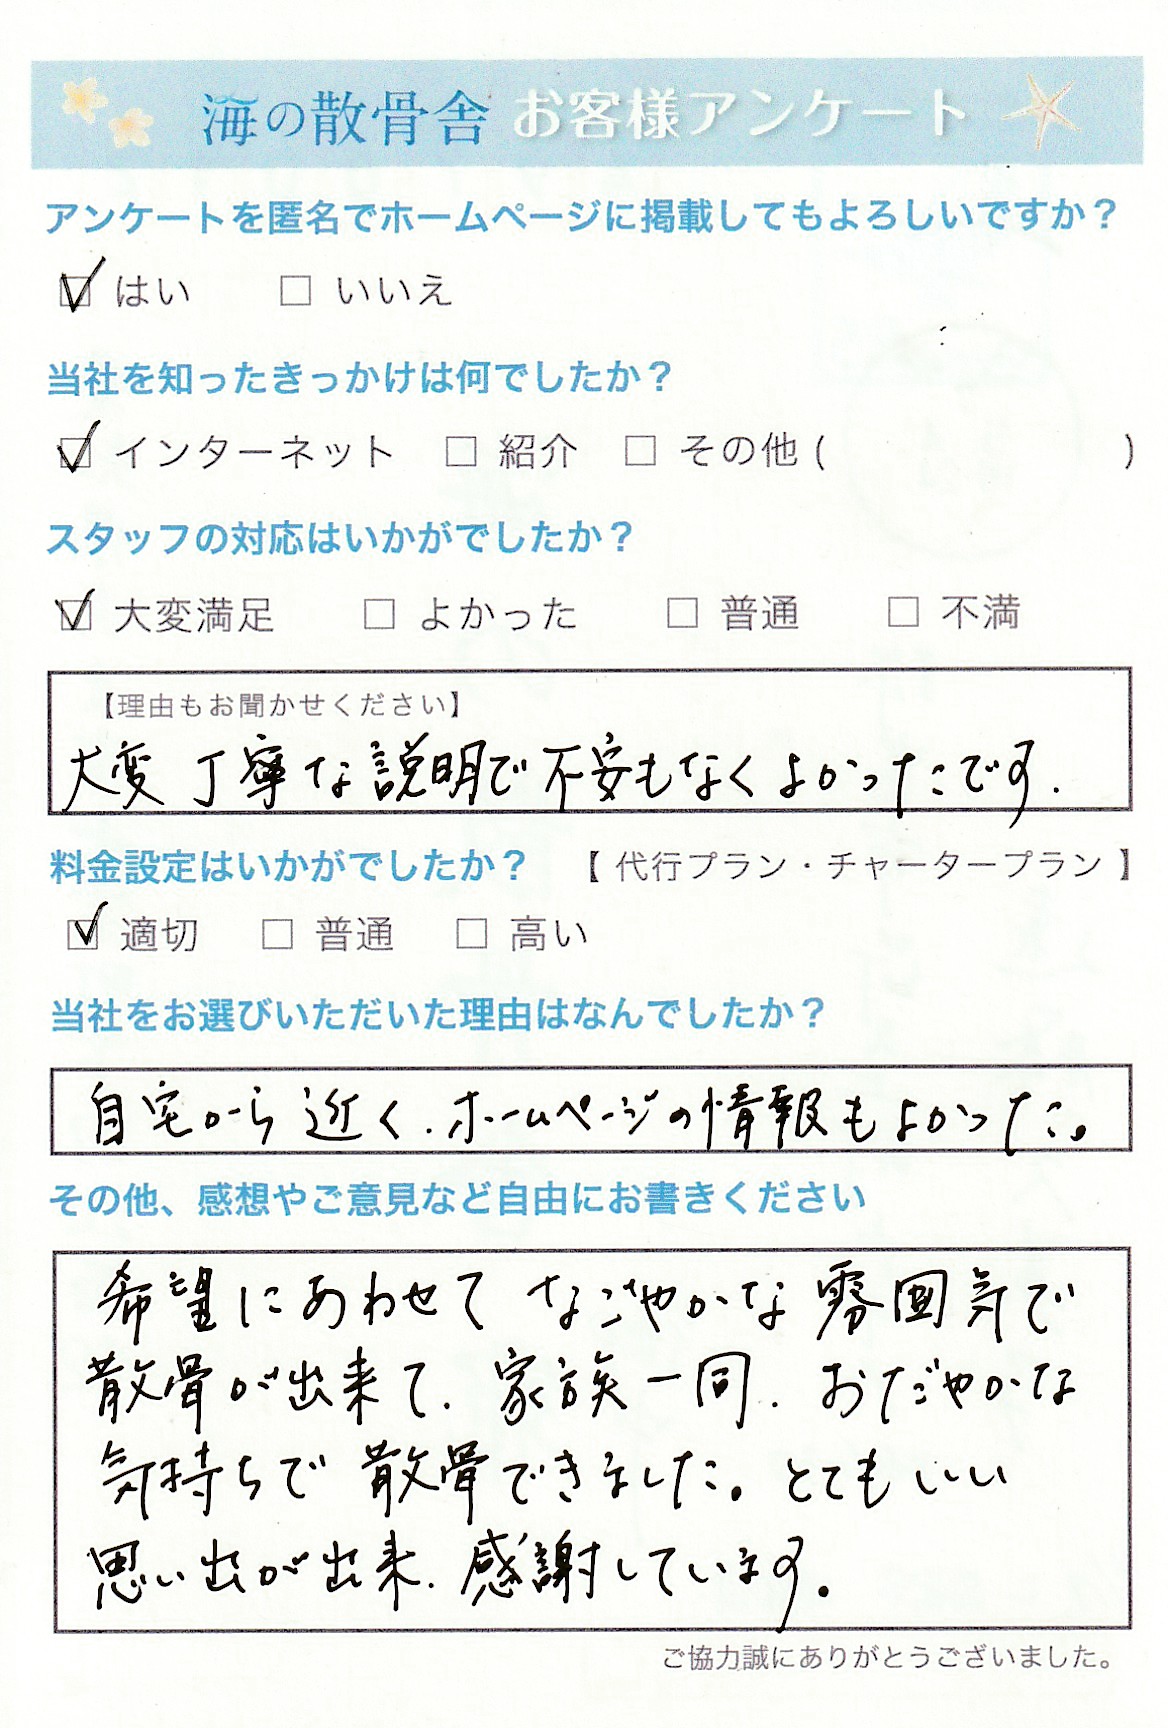 海の散骨舎 お客様アンケート
アンケートを匿名でホームページに掲載してもよろしいですか？
☑ はい □ いいえ
当社を知ったきっかけは何でしたか？
☑ インターネット □ 紹介 □ その他 ( )
スタッフの対応はいかがでしたか？
☑ 大変満足 □ よかった □ 普通 □ 不満
【理由もお聞かせください】
大変丁寧な説明で不安もなくよかったです.
料金設定はいかがでしたか？ 【 代行プラン・チャータープラン 】
☑ 適切 □ 普通 □ 高い
当社をお選びいただいた理由はなんでしたか？
自宅から近く.ホームページの情報もよかった。
その他、感想やご意見など自由にお書きください
希望にあわせてなごやかな雰囲気で
散骨が出来て.家族一同.おだやかな
気持ちで散骨できました。とてもいい
思い出が出来.感謝しています。
ご協力誠にありがとうございました。